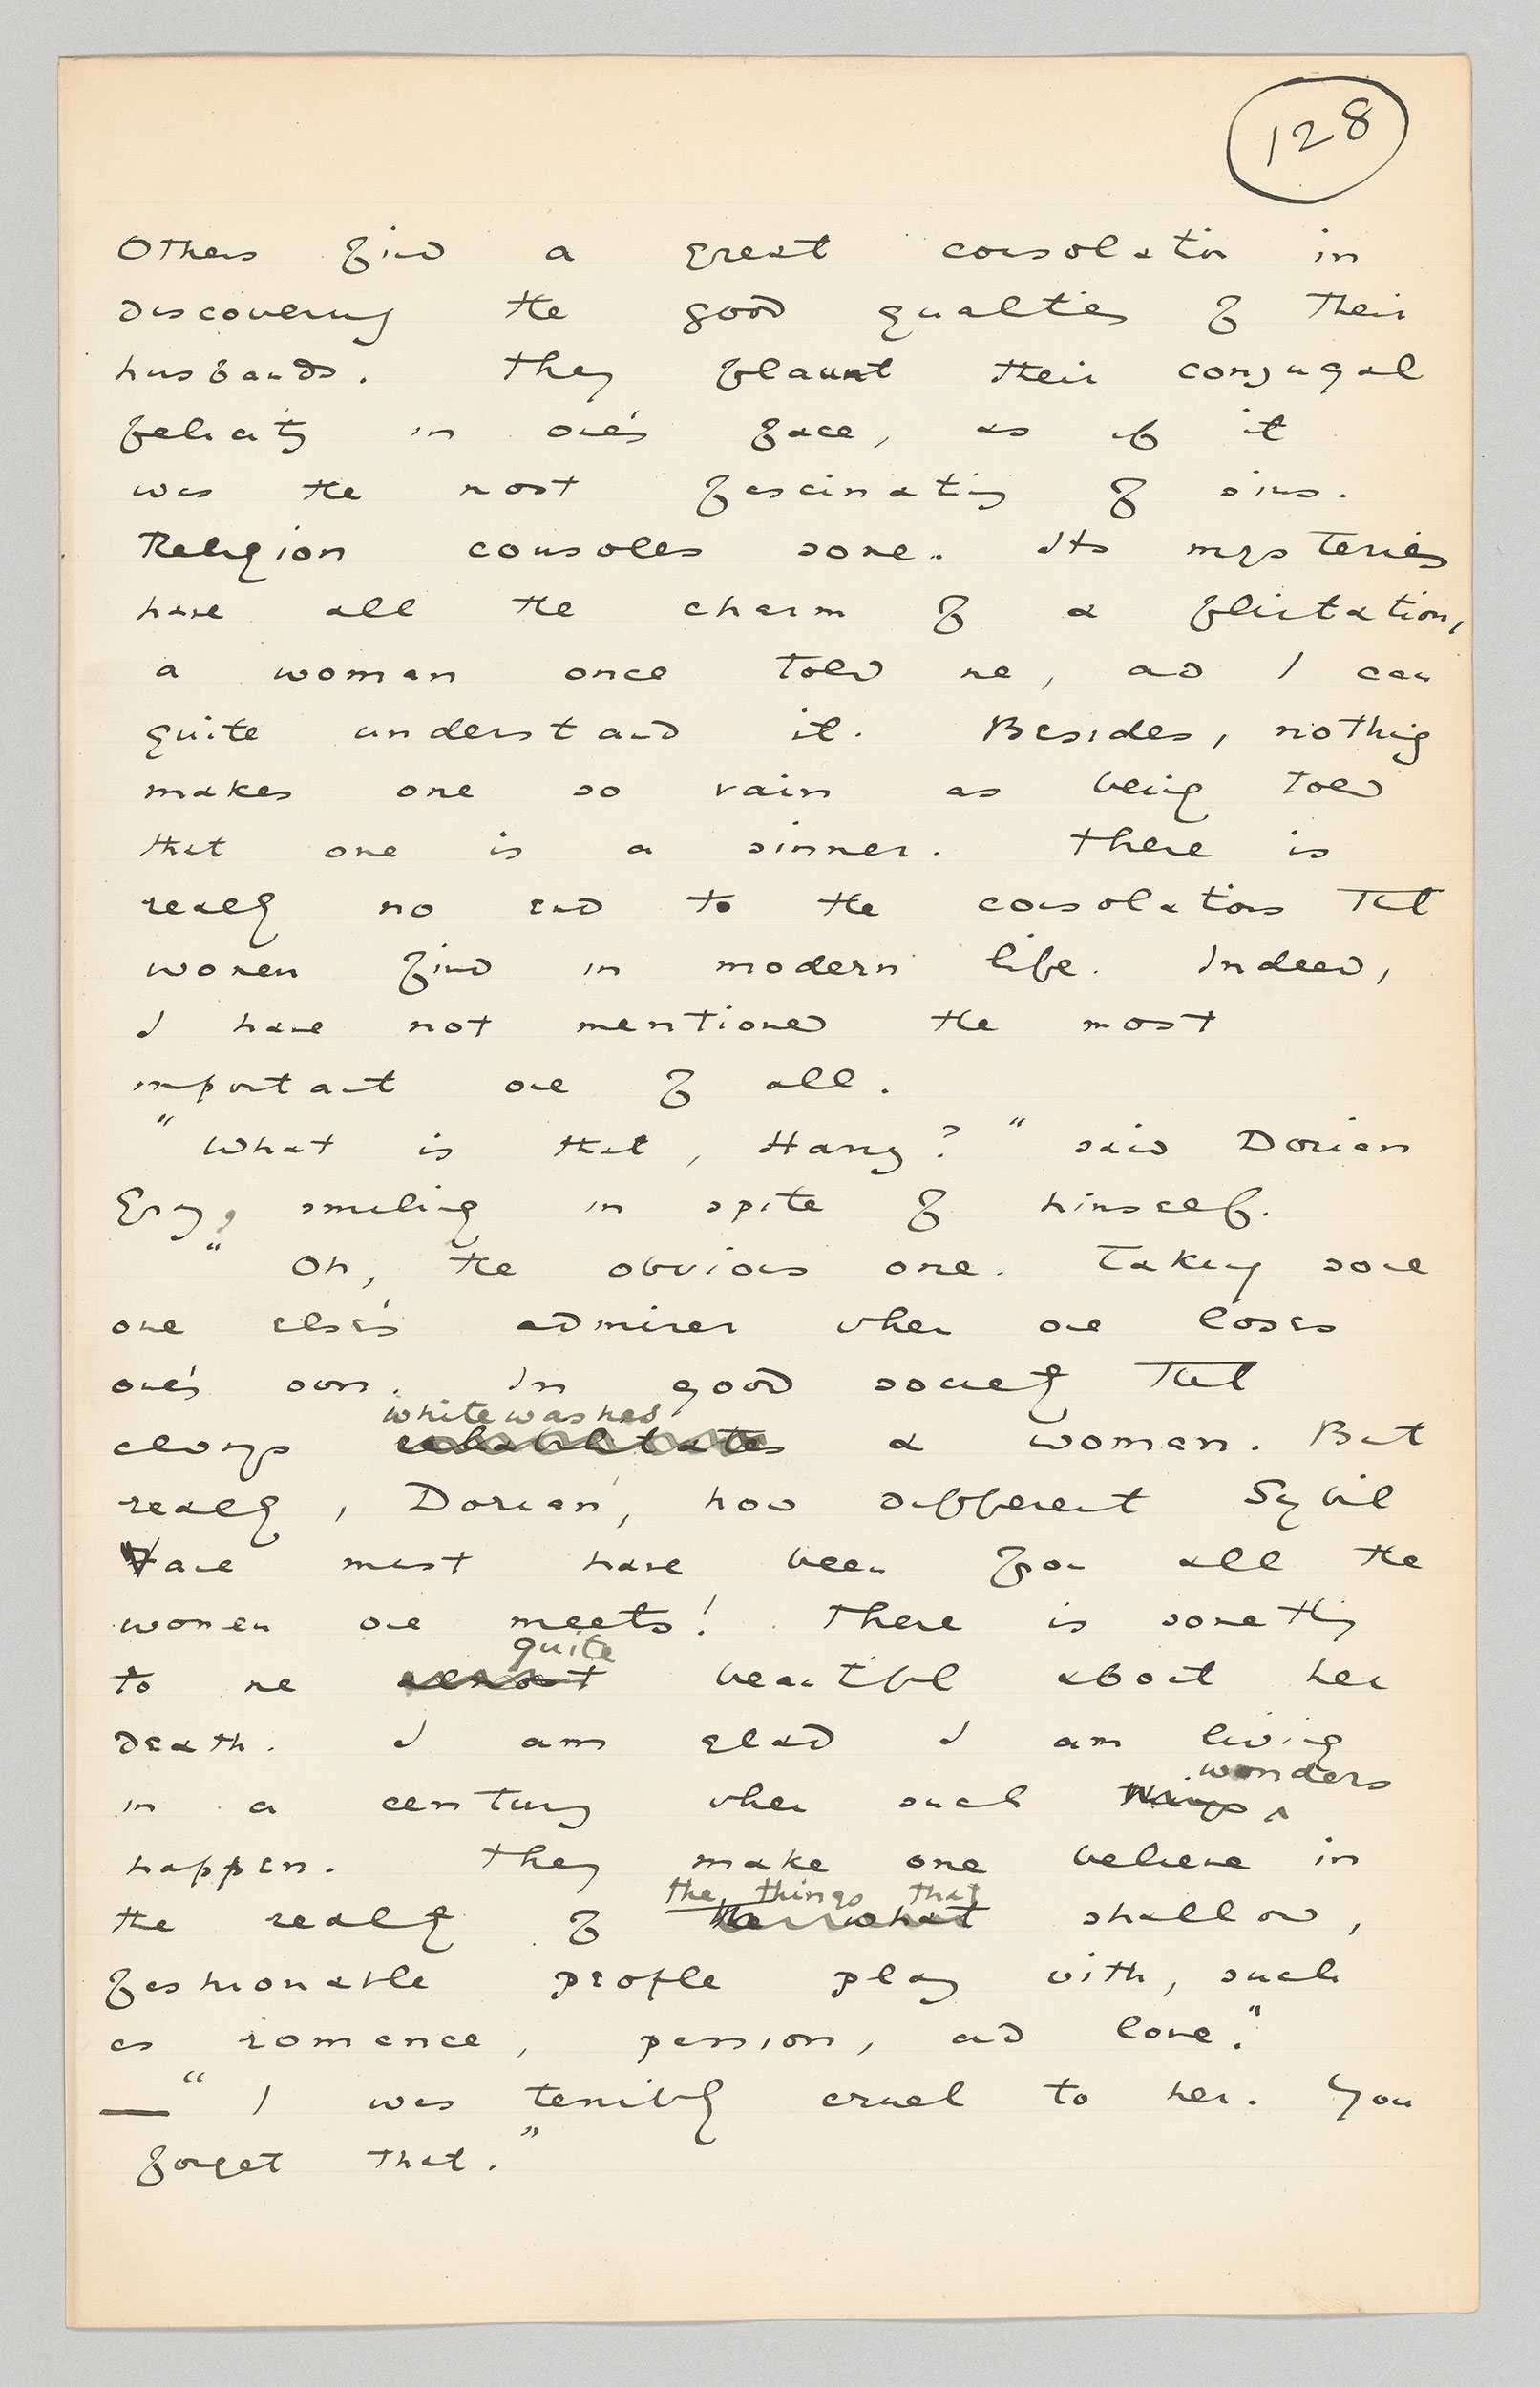 128
Others find a great consolation in
discovering the good qualities of their
husbands. They flaunt their conjugal
felicity in one's face, as if it
was the most fascinating of sins.
Religion consoles some. Its mysteries
have all the charm of a flirtation,
a woman once told me, and I can
quite understand it. Besides, nothing
makes one so vain as being told
that one is a sinner. There is
really no end to the consolations that
women find in modern life. Indeed,
I have not mentioned the most
important one of all.
"What is that, Harry?" said Dorian
Gray, smiling in spite of himself.
"Oh, the obvious one. Taking some
one else's admirer when one loses
one's own. In good society that
whitewashes
always rehabilitates a woman. But
really, Dorian, how different Sybil
Vane must have been from all the
women one meets! There is something
quite
to me almost beautiful about her
death. I am glad I am living
wonders
in a century when such things
happen. They make one believe in
the things that
the reality of what shallow,
fashionable people play with, such
as romance, passion, and love."
"I was terribly cruel to her. You
forget that."